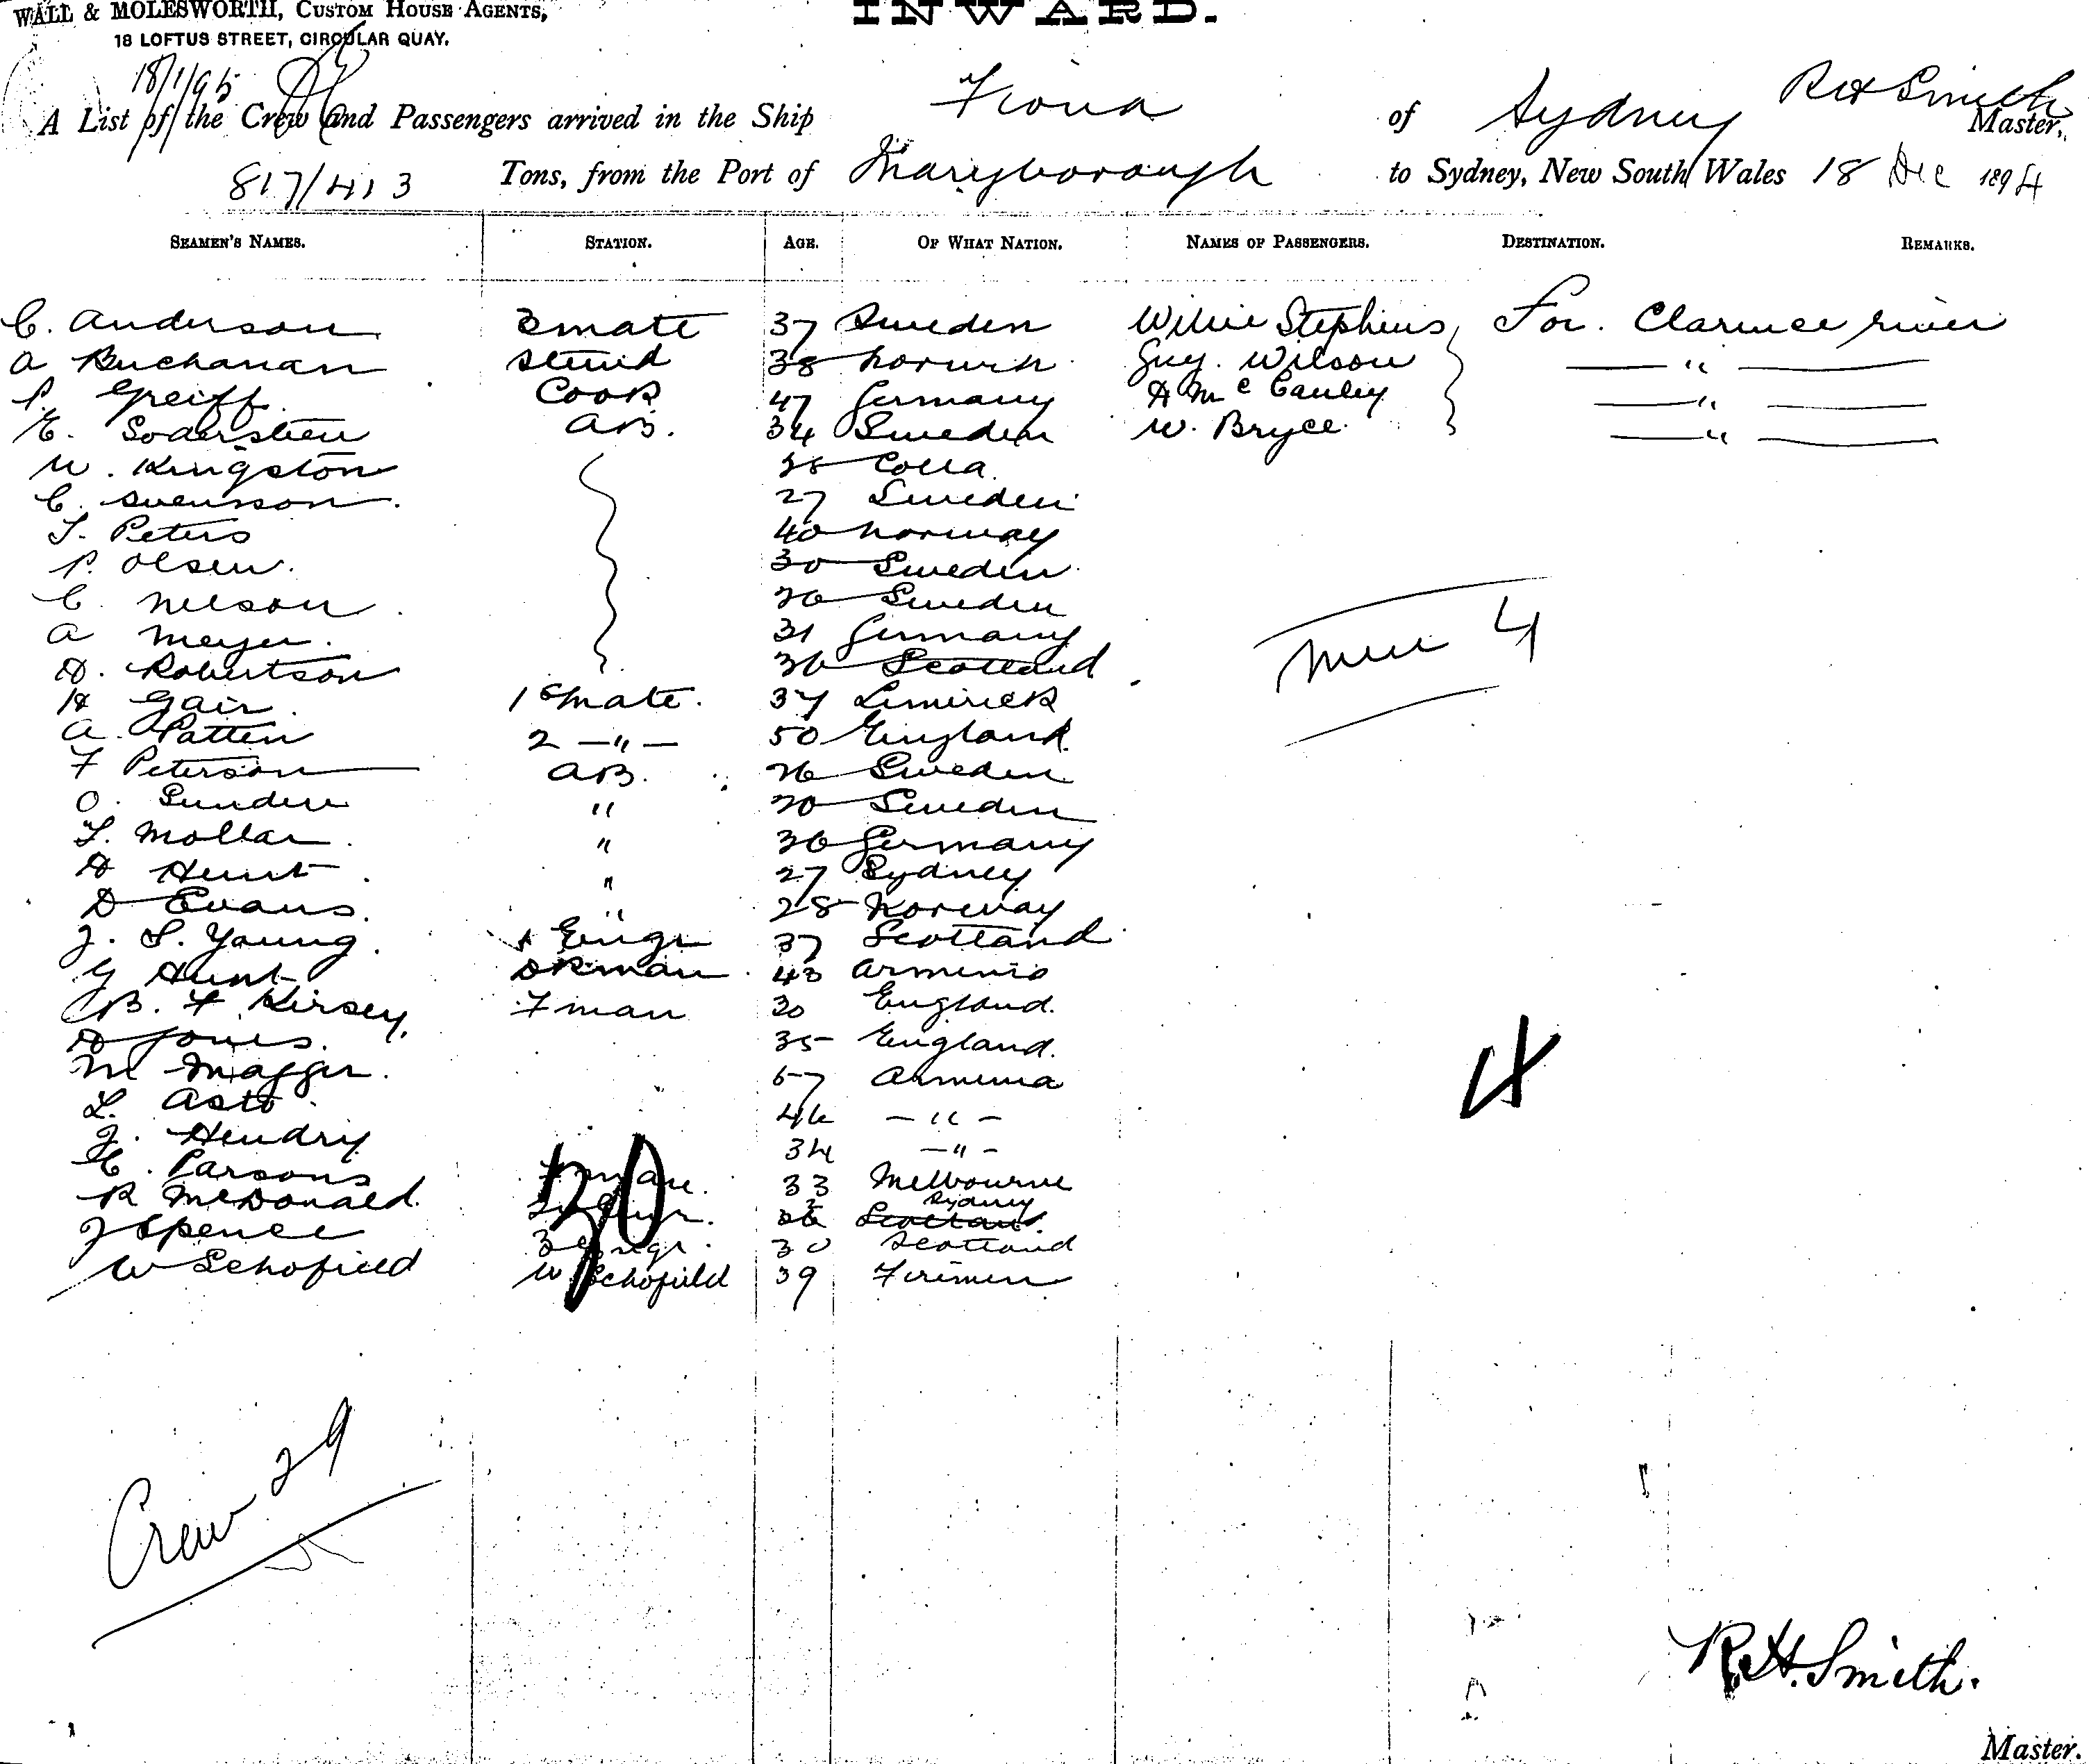 WALL & MOLESWORTH, CUSTOM HOUSE AGENTS,
18 LOFTUS STREET, CIRCULAR QUAY.
INWARD.
18/1/95
A List of the Crew and Passengers arrived in the Ship Fiona of Sydney R H Smith Master,
817/413 Tons, from the Port of Maryborough to Sydney, New South Wales 18 Dec 1894
SEAMEN'S NAMES. STATION. AGE. OF WHAT NATION. NAMES OF PASSENGERS. DESTINATION. REMARKS.
C. Anderson 3 mate 37 Sweden Willie Stephens For. Clarence river
A Buchanan 38 Guy. Wilson — " —
P. Greiff Cook 47 Germany A McCauley — " —
E. Soderstien AB. 34 Sweden W. Bryce — " —
W. Kingston
C. Svensson. 27 Sweden
T. Peters 40 Norway
P. Olsen. 30 Sweden
C. Nelson 26 Sweden
A Meyer. 31 Germany
D. Robertson 36 Scotland
H Gair. 1st mate. 37 Limirick
A. Patten 2 — " — 50 England
F Peterson AB. 26 Sweden
O. Sunden " 20 Sweden
T. Mollar " 36 Germany
A Hunt " 27 Sydney
D Evans. " 28 Norway
J. S. Young. 1 Engr 37 Scotland
G Hunt DKman 43 Armenia
B. F Kirsey. Fman 30 England.
A Jones. 35 England.
M Magger. 57 Armenia
L. Asto 46 — " —
J. Hendry 34 — " —
C. Parsons Fman. 33 Melbourne
R McDonald 2 Engr. Sydney Scotland
J Spence 3 Engr. 30 Scotland
W Schofield W Schofield 39 Firemen
Men 4
4
30
Crew 29
R. H. Smith.
Master.